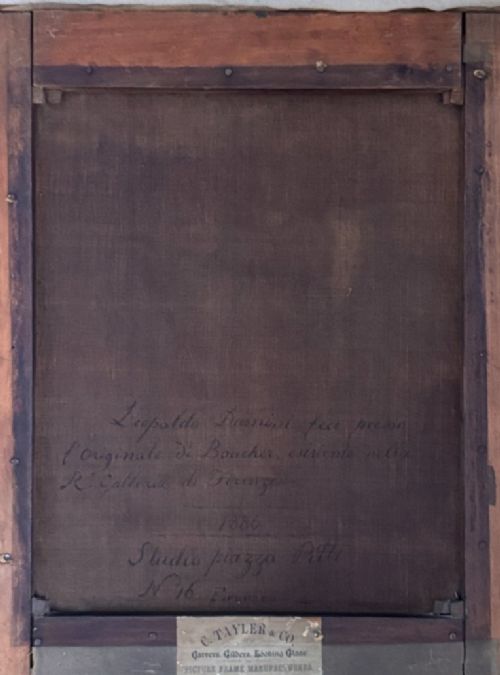 Leopaldo Durnini fece presso
l'Originale di Boucher, esistente nella
Rl. Galleria di Firenze
1880
Studio piazza Pitti
No 16 Firenze
C. TAYLER & CO.
Carvers, Gilders, Looking Glass
PICTURE FRAME MANUFAC. WORKS.